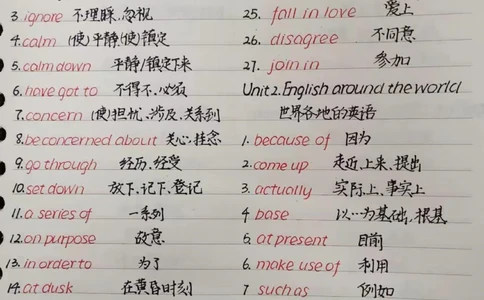 3. ignore 不理睬.忽视
4.calm (使)平静.(使)镇定
5.calm down 平静/镇定下来
6.have got to 不得不.必须
7.concern (使)担忧.涉及.关系到
8.be concerned about 关心.挂念
9.go through 经历.经受
10.set down 放下.记下.登记
11.a series of 一系列
12.on purpose 故意
13.in order to 为了
14.at dusk 在黄昏时刻
25. fall in love 爱上
26. disagree 不同意
27. join in 参加
Unit 2.English around the world
世界各地的英语
1. because of 因为
2.come up 走近.上来.提出
3. actually 实际上.事实上
4 base 以…为基础.根基
5. at present 目前
6. make use of 利用
7 such as 例如